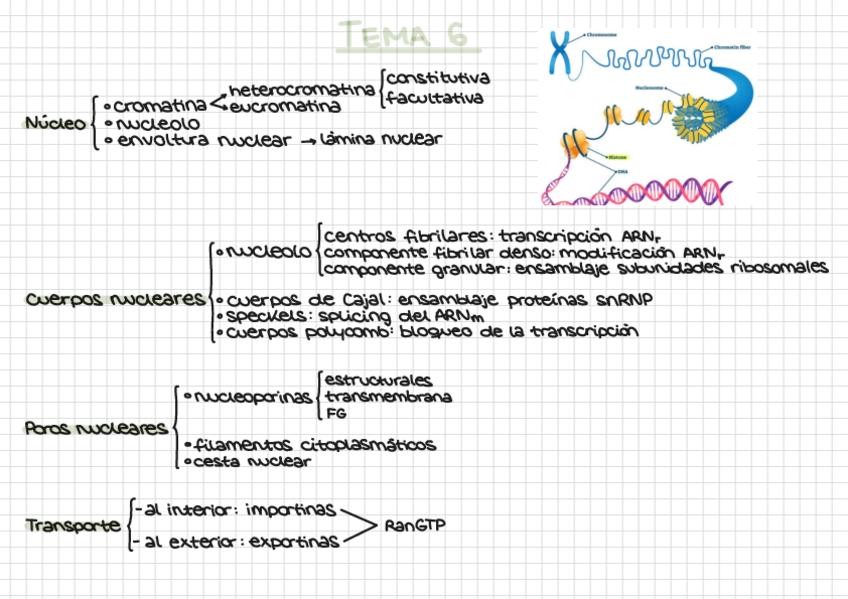 TEMA 6
Chromosome
Chromatin fiber
Nucleosome
Histone
DNA
Núcleo
• cromatina
heterocromatina
constitutiva
facultativa
eucromatina
• nucleolo
• envoltura nuclear → lámina nuclear
Cuerpos nucleares
• nucleolo
centros fibrilares: transcripción ARNr
componente fibrilar denso: modificación ARNr
componente granular: ensamblaje subunidades ribosomales
• cuerpos de Cajal: ensamblaje proteínas snRNP
• speckels: splicing del ARNm
• cuerpos polycomb: bloqueo de la transcripción
Poros nucleares
• nucleoporinas
estructurales
transmembrana
FG
• filamentos citoplasmáticos
• cesta nuclear
Transporte
- al interior: importinas
- al exterior: exportinas
RanGTP